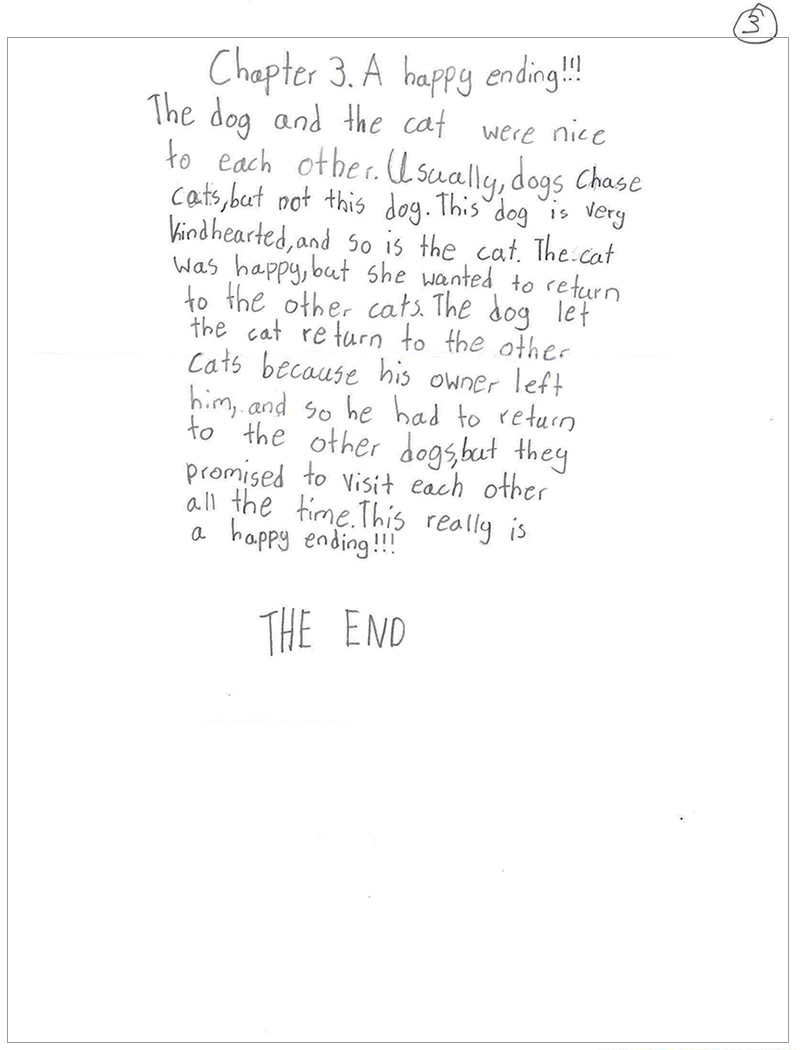 3
Chapter 3. A happy ending!!!
The dog and the cat were nice
to each other. Usually, dogs chase
cats, but not this dog. This dog is very
kindhearted, and so is the cat. The cat
was happy, but she wanted to return
to the other cats. The dog let
the cat return to the other
cats because his owner left
him, and so he had to return
to the other dogs, but they
promised to visit each other
all the time. This really is
a happy ending!!!
THE END